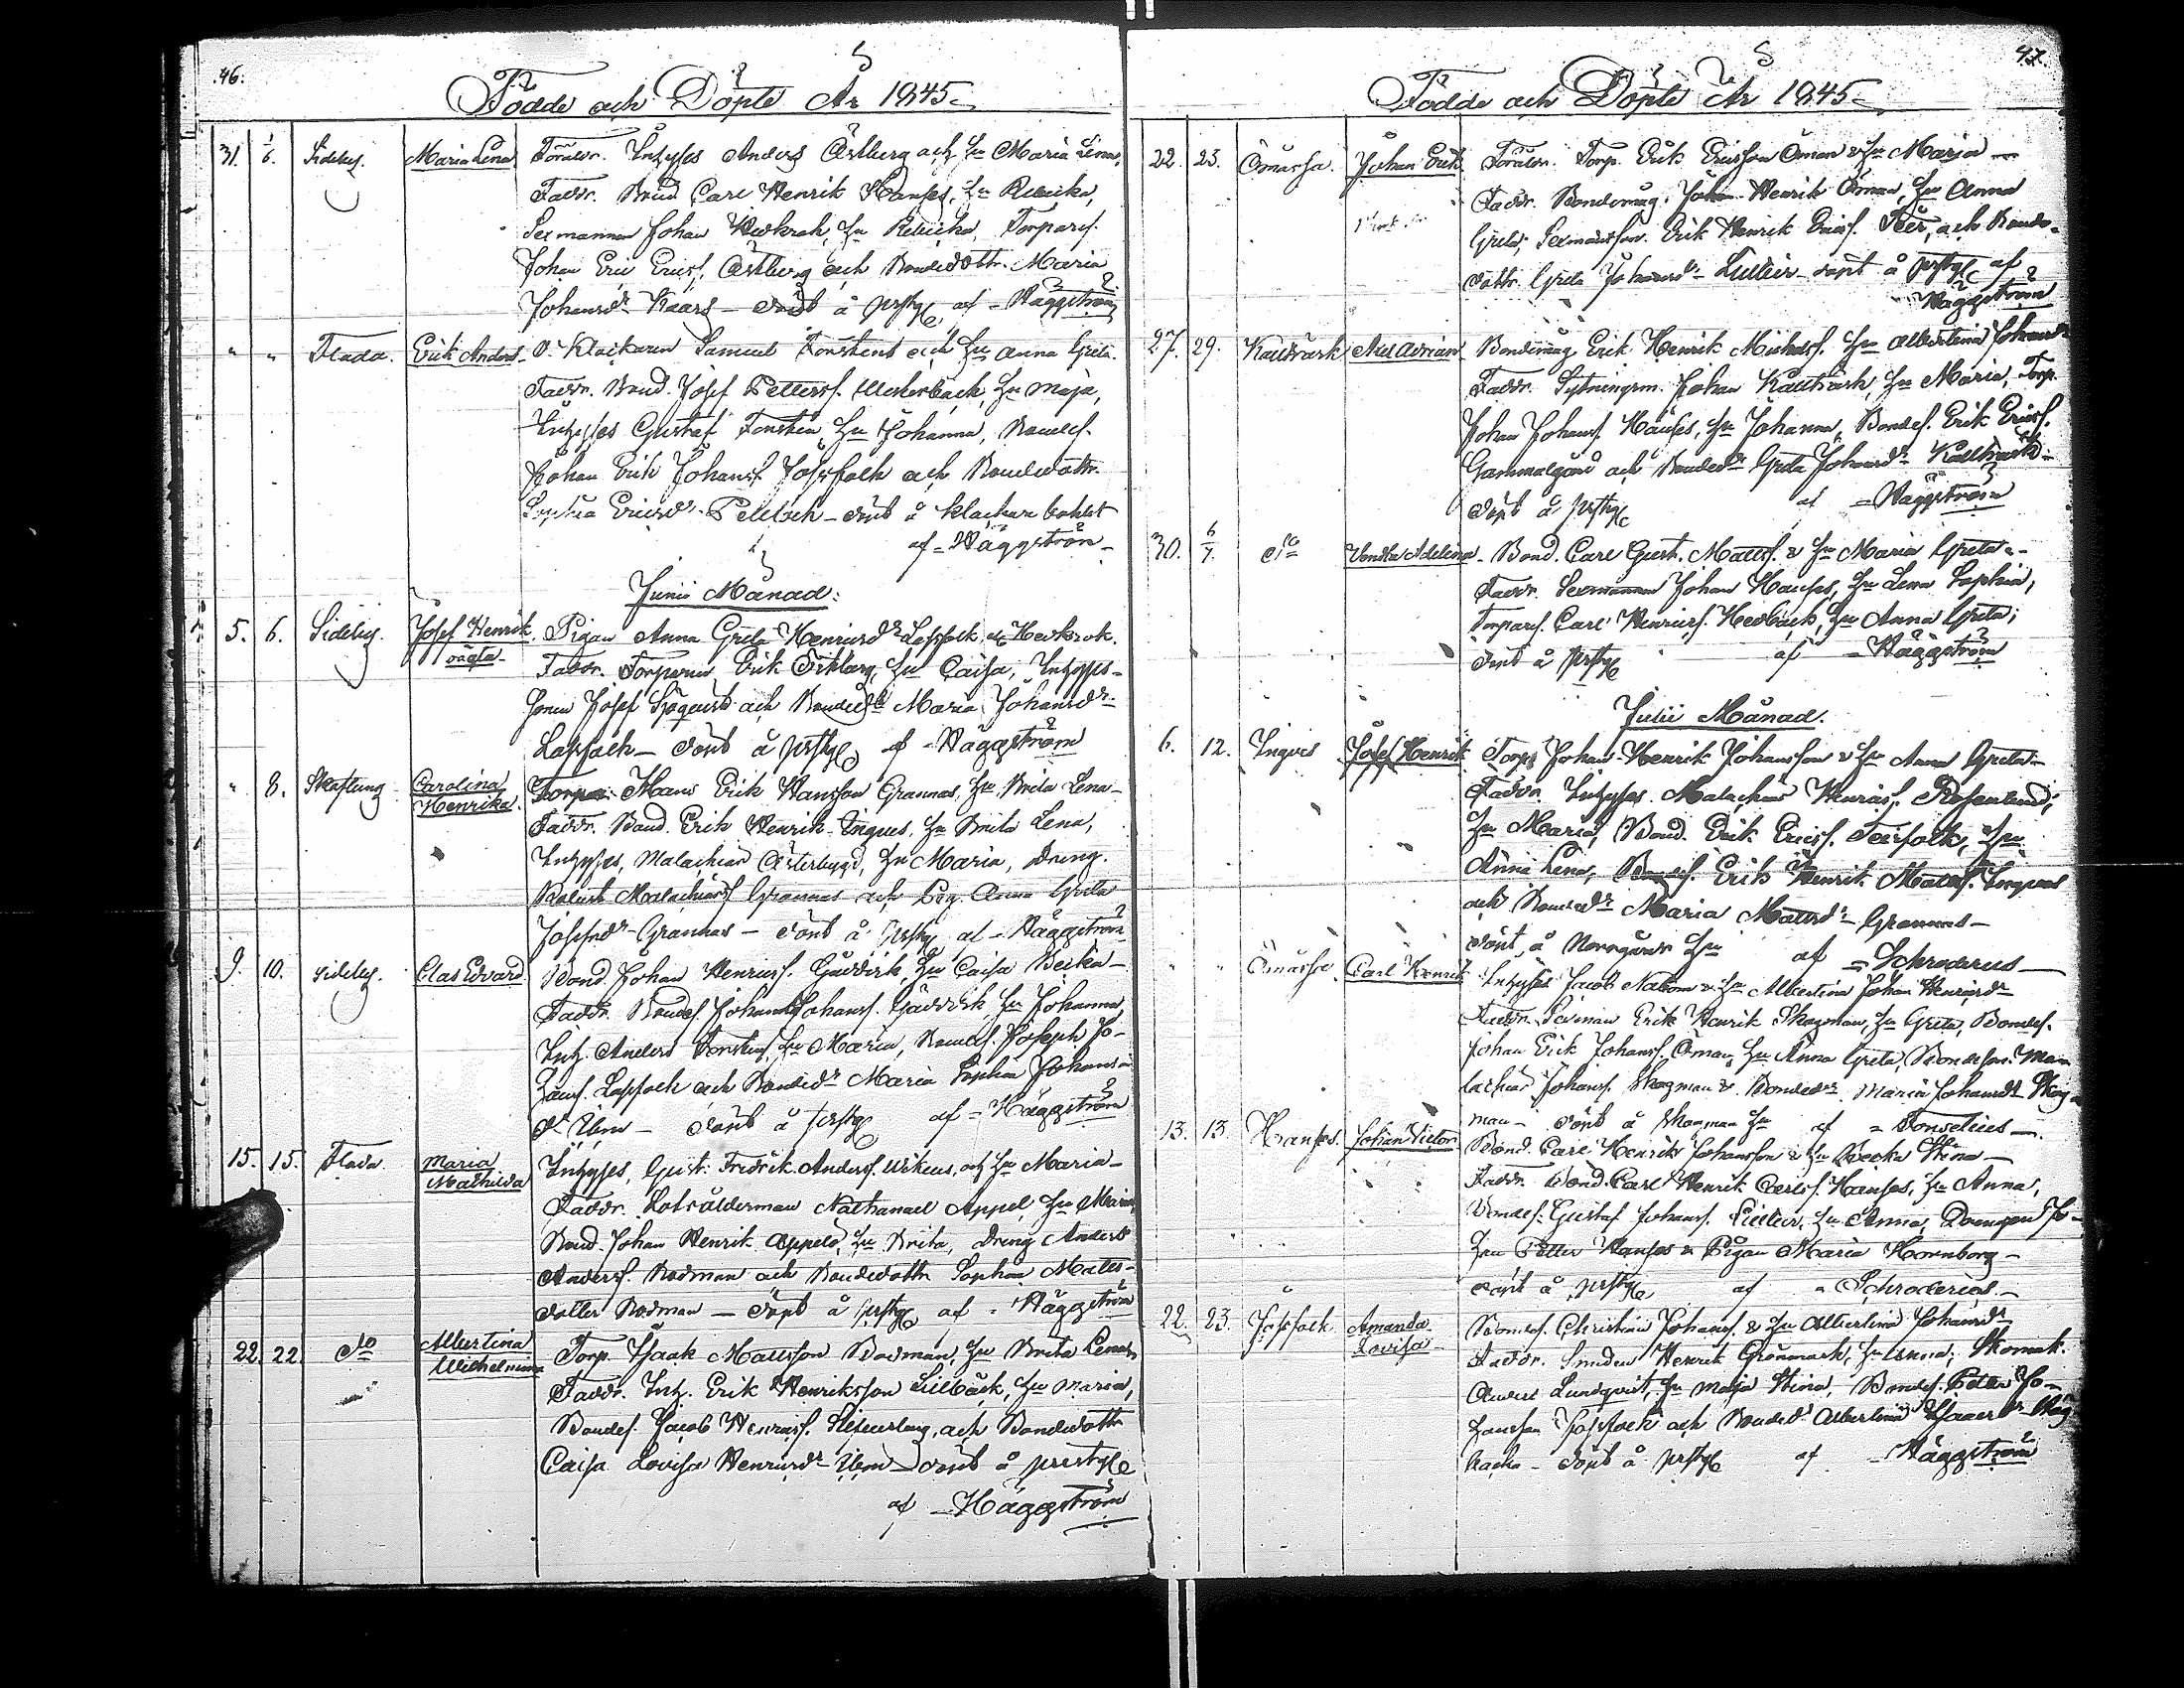 46.
Födde och Döpte År 1845
31. 1/6. Sideby. Maria Lena Föräldr. Inhyses Anders Åstberg och Hu Maria Lena,
Faddr. Bond Carl Henrik Hanses, Hu Rebecka,
Sexmannen Johan Hevkrok, Hu Rebecka, Torpars.
Johan Eric Ericss. Åstberg och Bondedottr. Maria
Johansdr Kaars – döpt å prstg af Häggström
" " Flada. Erik Anders. Klockaren Samuel Forstens och Hu Anna Greta.
Faddr. Bond. Josef Petterss. Hu Maja,
Inhyses Gustaf Forstén Hu Johanna, Bondes.
Johan Erik Johanss. Jossfolk och Bondedottr.
Sophia Ericsdr. – döpt å klockare bohlet
af Häggström
Junii Månad:
5. 6. Sideby. Josef Henrik oägta Pigan Anna Greta Henricsdr Lassfolk Hevkrok.
Faddr. Torparen Erik Hu Caisa, Inhyses
sonen Josef och Bondedr Maria Johansdr
Lassfolk – döpt å prstg af Häggström
" 8. Skaftung Carolina Henrika. Måns Erik Hansson Grannas, Hu Brita Lena
Faddr. Bond. Erik Henrik Ingves, Hu Brita Lena,
Inhyses, Malachias Österbygd, Hu Maria, Dreng.
Malachiass Grannas och Pig. Anna Greta
Josefsdr Grannas – döpt å prstg af Häggström
9. 10. Sideby. Clas Edvard Bond. Johan Henricss. Gäddick, Hu Caisa Becka
Faddr. Bondes. Johan Johanss. Gäddick, Hu Johanna,
Inh. Anders Forstens, Hu Maria, Bondes. Joseph Jo-
hanss. Lassfolk och Bondedr Maria Sophia Johans
dr Ulm – döpt å prstg af Häggström
15. 15. Flada. Maria Mathilda Inhyses, Gust. Fredrik Anderss. och Hu Maria
Faddr. Lotsålderman Nathanael Appel, Hu Maria
Bond. Johan Henrik Appelö, Hu Brita, Dreng Anders
Anderss. Rodman och Bondedottr Sophia Matts-
dotter Rodman – döpt å prstg af Häggström
22. 22. do Albertina Wilhelmina Torp. Isaak Mattsson Rodman, Hu Brita Lena
Faddr. Inh. Erik Henriksson Lillbäck, Hu Maria,
Bondes. Jacob Henricss. och Bondedottr
Caisa Lovisa Henricsdr Ulm – döpt å prestg
af Häggström
47.
Födde och Döpte År 1845
22. 25. Ömossa. Johan Erik Föräldr. Torp. Erik Ericsson Öman & Hu Maria
Faddr. Bondemåg. Johan Henrik Öman, Hu Anna
Greta, Sexmansson. Erik Henrik Ericss. Teer, och Bonde-
dottr Greta Johansdr – döpt å prstg af
Häggström
27. 29. Kallträsk Axel Adrian Bondemåg Erik Henrik Michelss. Hu Albertina Johansdr
Faddr. Sytningsm. Johan Kallträsk, Hu Maria, Torp.
Johan Johanss. Hanses, Hu Johanna, Bondes. Erik Ericss.
Gammelgård och Bondedr Greta Johansdr Kallträsk
döpt å prstg af Häggström
30. 6/7. do Vendla Adelina. Bond. Carl Gust. Mattss. & Hu Maria Greta
Faddr. Sexmannen Johan Hanses, Hu Lena Sophia,
Torpars. Carl Henricss. Hedbäck, Hu Anna Greta;
döpt å prstg af Häggström
Julii Månad.
6. 12. Ingves Josef Henrik Torp. Johan Henrik Johansson & Hu Anna Greta
Faddr. Inhyses. Malachias Henricss. Rosenlund,
Hu Maria, Bond. Erik Ericss. Teirfolk, Hu
Anna Lena, Bondes. Erik Henrik Mattss. Ingves
och Bondedr Maria Mattsdr Grannas –
döpt å Norrgårds Hu af Schroderus
" " Ömossa. Carl Henrik Inhyses Jacob & Hu Albertina Johan Henricsdr
Faddr. Erik Henrik Skogman, Hu Greta, Bondes.
Johan Erik Johanss. Öman, Hu Anna Greta, Bondeson. Ma-
lachias Johanss. Skogman & Bondedr. Maria Johansdr Skog-
man – döpt å Skogman af Fonselius
13. 13. Hanses. Johan Victor Bond. Carl Henrik Johansson & Hu Becka Stina
Faddr. Bond. Carl Henrik Carlss. Hanses, Hu Anna,
Bondes. Gustaf Johanss. Hu Anna, Drengen Jo-
han Petter Hanses & Pigan Maria Hornborg
döpt å prstg af Schroderus
22. 23. Jossfolk Amanda Lovisa Bondes. Christian Johanss. & Hu Albertina Johansdr
Faddr. Smeden Henrik Grönmark, Hu Anna, Skomak.
Anders Lundqvist, Hu Maja Stina, Bondes. Petter Jo-
hansson Jossfolk och Bondedr Albertina Isaacsdr
backa – döpt å prstg af Häggström